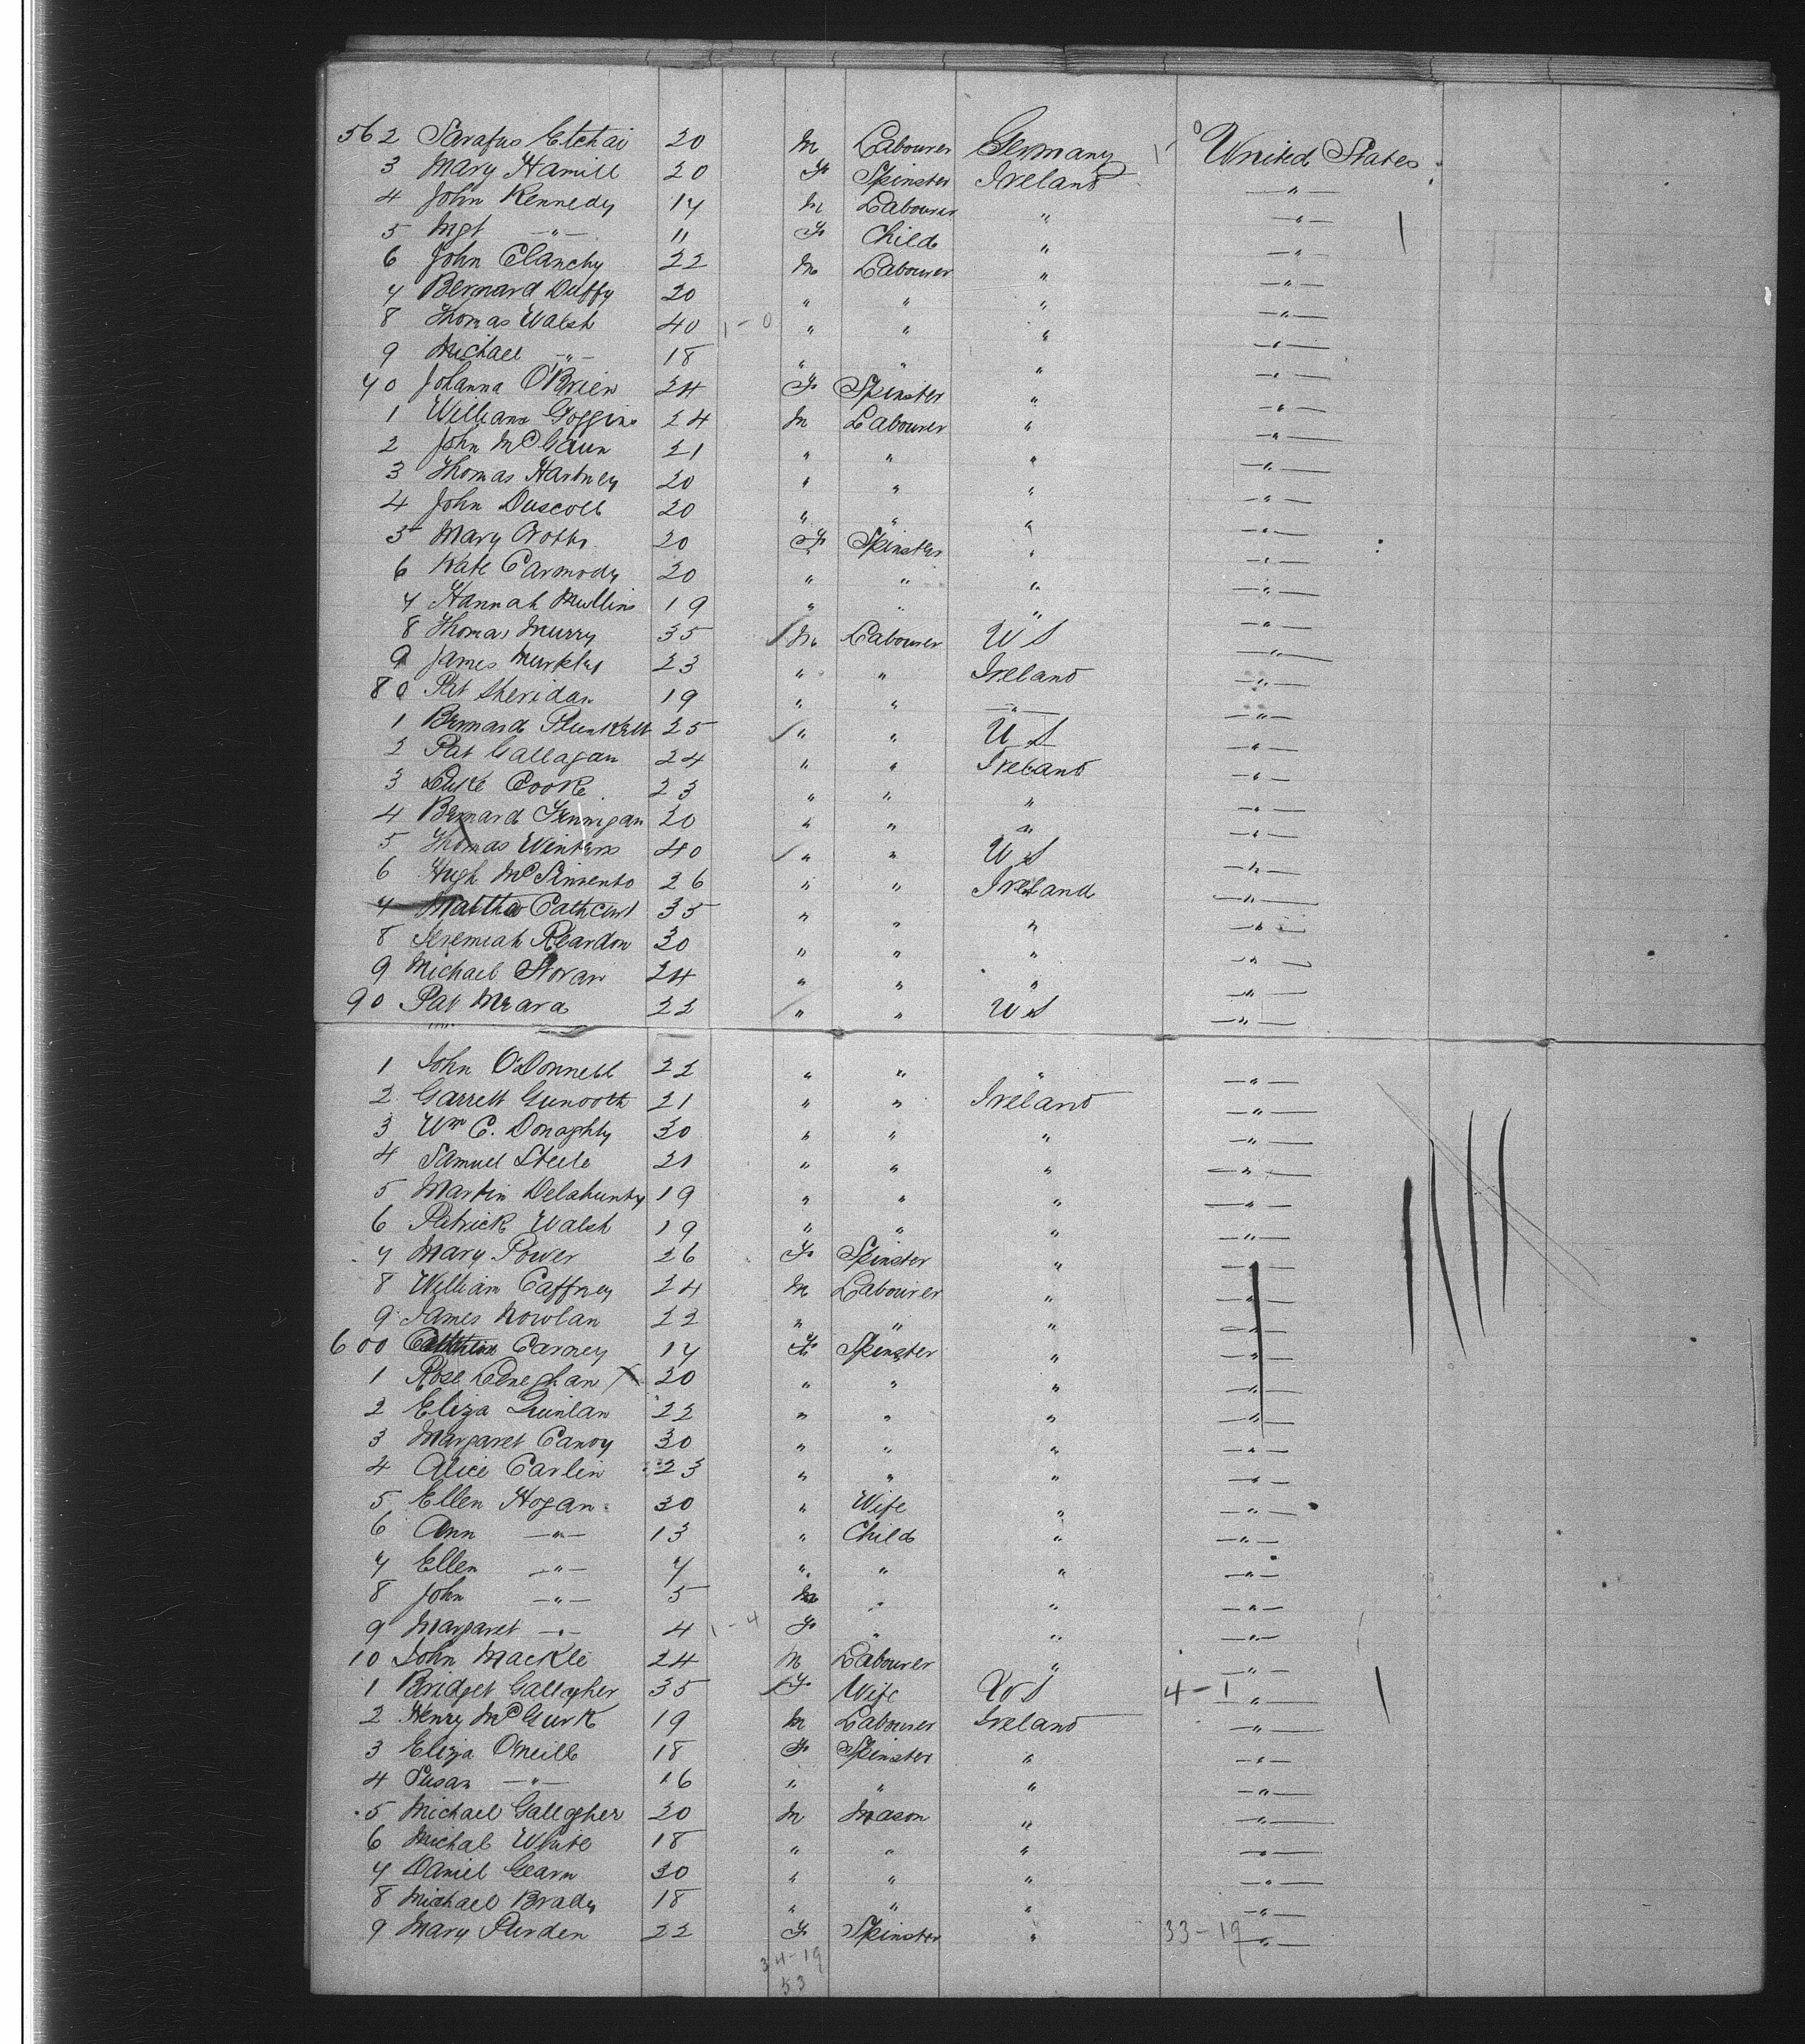 562 Sarafus Etchai 20 M Labourer Germany United States
3 Mary Hamill 20 F Spinster Ireland "
4 John Kennedy 17 M Labourer " "
5 Mgt " 11 F Child " "
6 John Clanchy 22 M Labourer " "
7 Bernard Duffy 20 " " " "
8 Thomas Walsh 40 1-0 " " " "
9 Michael " 18 " " " "
70 Johanna O'Brien 24 F Spinster " "
1 William Goggin 24 M Labourer " "
2 John McGaun 21 " " " "
3 Thomas Hartney 20 " " " "
4 John Duscoll 20 " " " "
5 Mary 20 F Spinster " "
6 Kate Carmody 20 " " " "
7 Hannah Mullins 19 " " " "
8 Thomas Murry 35 M Labourer U S "
9 James 23 " " Ireland "
80 Pat Sheridan 19 " " " "
1 Bernard Plunkett 25 " " U S "
2 Pat Gallagan 24 " " Ireland "
3 Luke Cooke 23 " " " "
4 Bernard Finnigan 20 " " " "
5 Thomas Winters 40 " " U S "
6 Hugh Mc 26 " " Ireland "
7 Matthew Cathcart 35 " " " "
8 Jeremiah Reardon 30 " " " "
9 Michael Horan 24 " " " "
90 Pat Meara 22 " " U S "
1 John O'Donnell 22 " " " "
2 Garrett 21 " " Ireland "
3 Wm C. Donaghty 30 " " " "
4 Samuel Steele 21 " " " "
5 Martin Delahunty 19 " " " "
6 Patrick Walsh 19 " " " "
7 Mary Power 26 F Spinster " "
8 William Caffney 24 M Labourer " "
9 James Nowlan 22 " " " "
600 Catherine Carney 17 F Spinster " "
1 Rose Leneghan 20 " " " "
2 Eliza Quinlan 22 " " " "
3 Margaret Canoy 30 " " " "
4 Alice Carlin 23 " " " "
5 Ellen Hogan 30 " Wife " "
6 Ann " 13 " Child " "
7 Ellen " 7 " " " "
8 John " 5 M " " "
9 Margaret " 4 1-4 F " " "
10 John Mackle 24 M Labourer " "
1 Bridget Gallagher 35 F Wife U S 4-1 "
2 Henry McGurk 19 M Labourer Ireland "
3 Eliza O'Neill 18 F Spinster " "
4 Susan " 16 " " " "
5 Michael Gallagher 20 M Mason " "
6 Michal White 18 " " " "
7 Daniel Gearn 30 " " " "
8 Michael Brady 18 " " " "
9 Mary Purden 22 F Spinster " 33-19 "
34-19
53